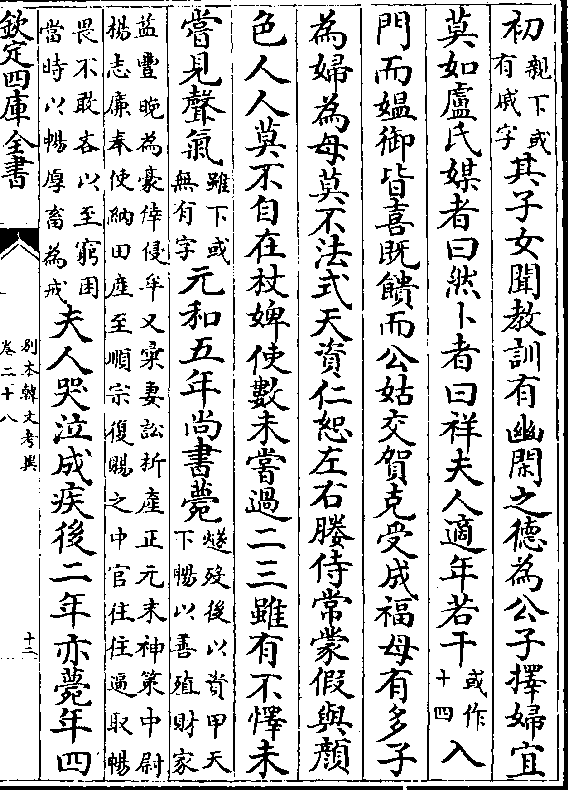 初親下或有戚字其子女聞教訓有幽閑之德為公子擇婦宜
莫如盧氏媒者曰然卜者曰祥夫人適年若干或作十四入
門而媼御皆喜既饋而公姑交賀克受成福母有多子
為婦為母莫不法式天資仁恕左右媵侍常蒙假與顏
色人人莫不自在杖婢使數未嘗過二三雖有不懌未
嘗見聲氣雖下或無有字元和五年尚書薨燧歿後以貲甲天下暢以善殖財家
益豐晚為豪倖侵牟又彚妻訟析產正元末神策中尉楊志廉奉使納田產至順宗復賜之中官往往逼取暢
畏不敢吝以至窮困當時以暢厚畜為戒夫人哭泣成疾後二年亦薨年四
欽定四庫全書
別本韓文考異
卷二十八
十二